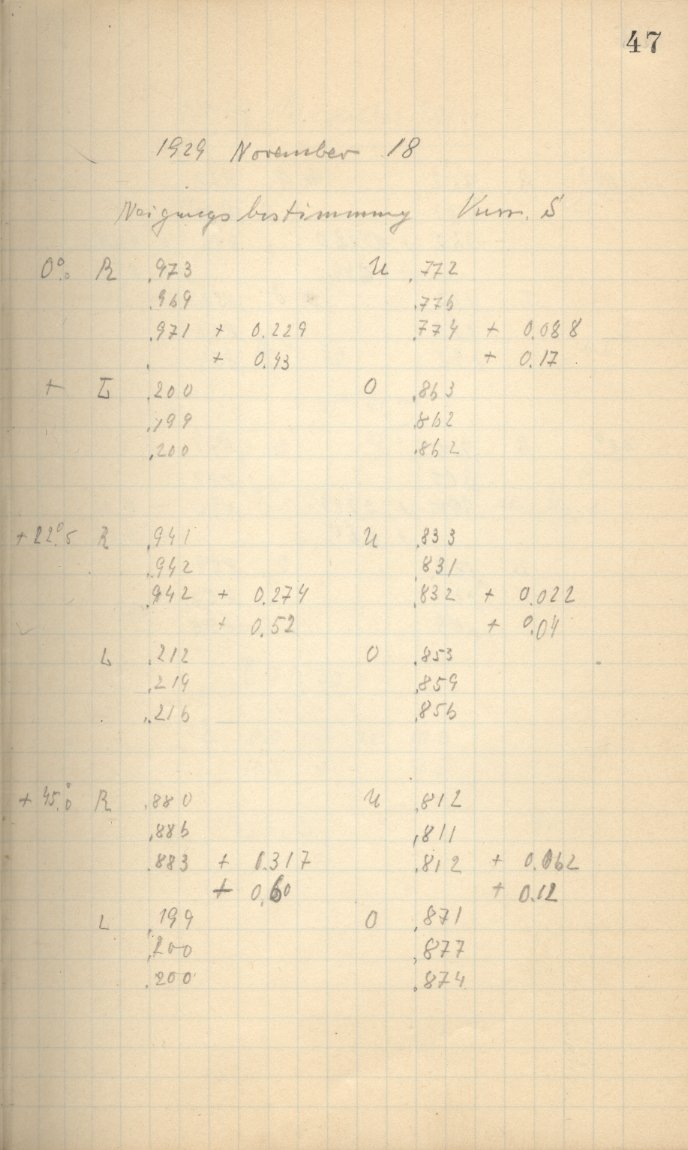 47
1929 November 18
Neigungsbestimmung Kurr. S
0°.0 R .973 U .772
.969 .776
.971 + 0.229 .774 + 0.088
+ 0.43 + 0.17
+ L .200 O .863
.199 .862
.200 .862
+22°.5 R .941 U .833
.942 .831
.942 + 0.274 .832 + 0.022
+ 0.52 + 0.04
L .212 O .853
.219 .859
.216 .856
+45°.0 R .880 U .812
.886 .811
.883 + 0.317 .812 + 0.062
+ 0.60 + 0.12
L .199 O .871
.200 .877
.200 .874